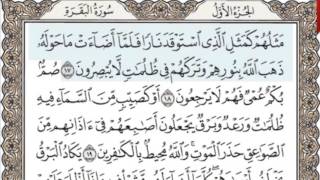 الجزء الأول سورة البقرة
مثلهم كمثل الذي استوقد نارا فلما أضاءت ما حوله
ذهب الله بنورهم وتركهم في ظلمت لا يبصرون ١٧ صم
بكم عمي فهم لا يرجعون ١٨ أو كصيب من السماء فيه
ظلمت ورعد وبرق يجعلون أصبعهم في ءاذانهم من
الصوعق حذر الموت والله محيط بالكفرين ١٩ يكاد البرق